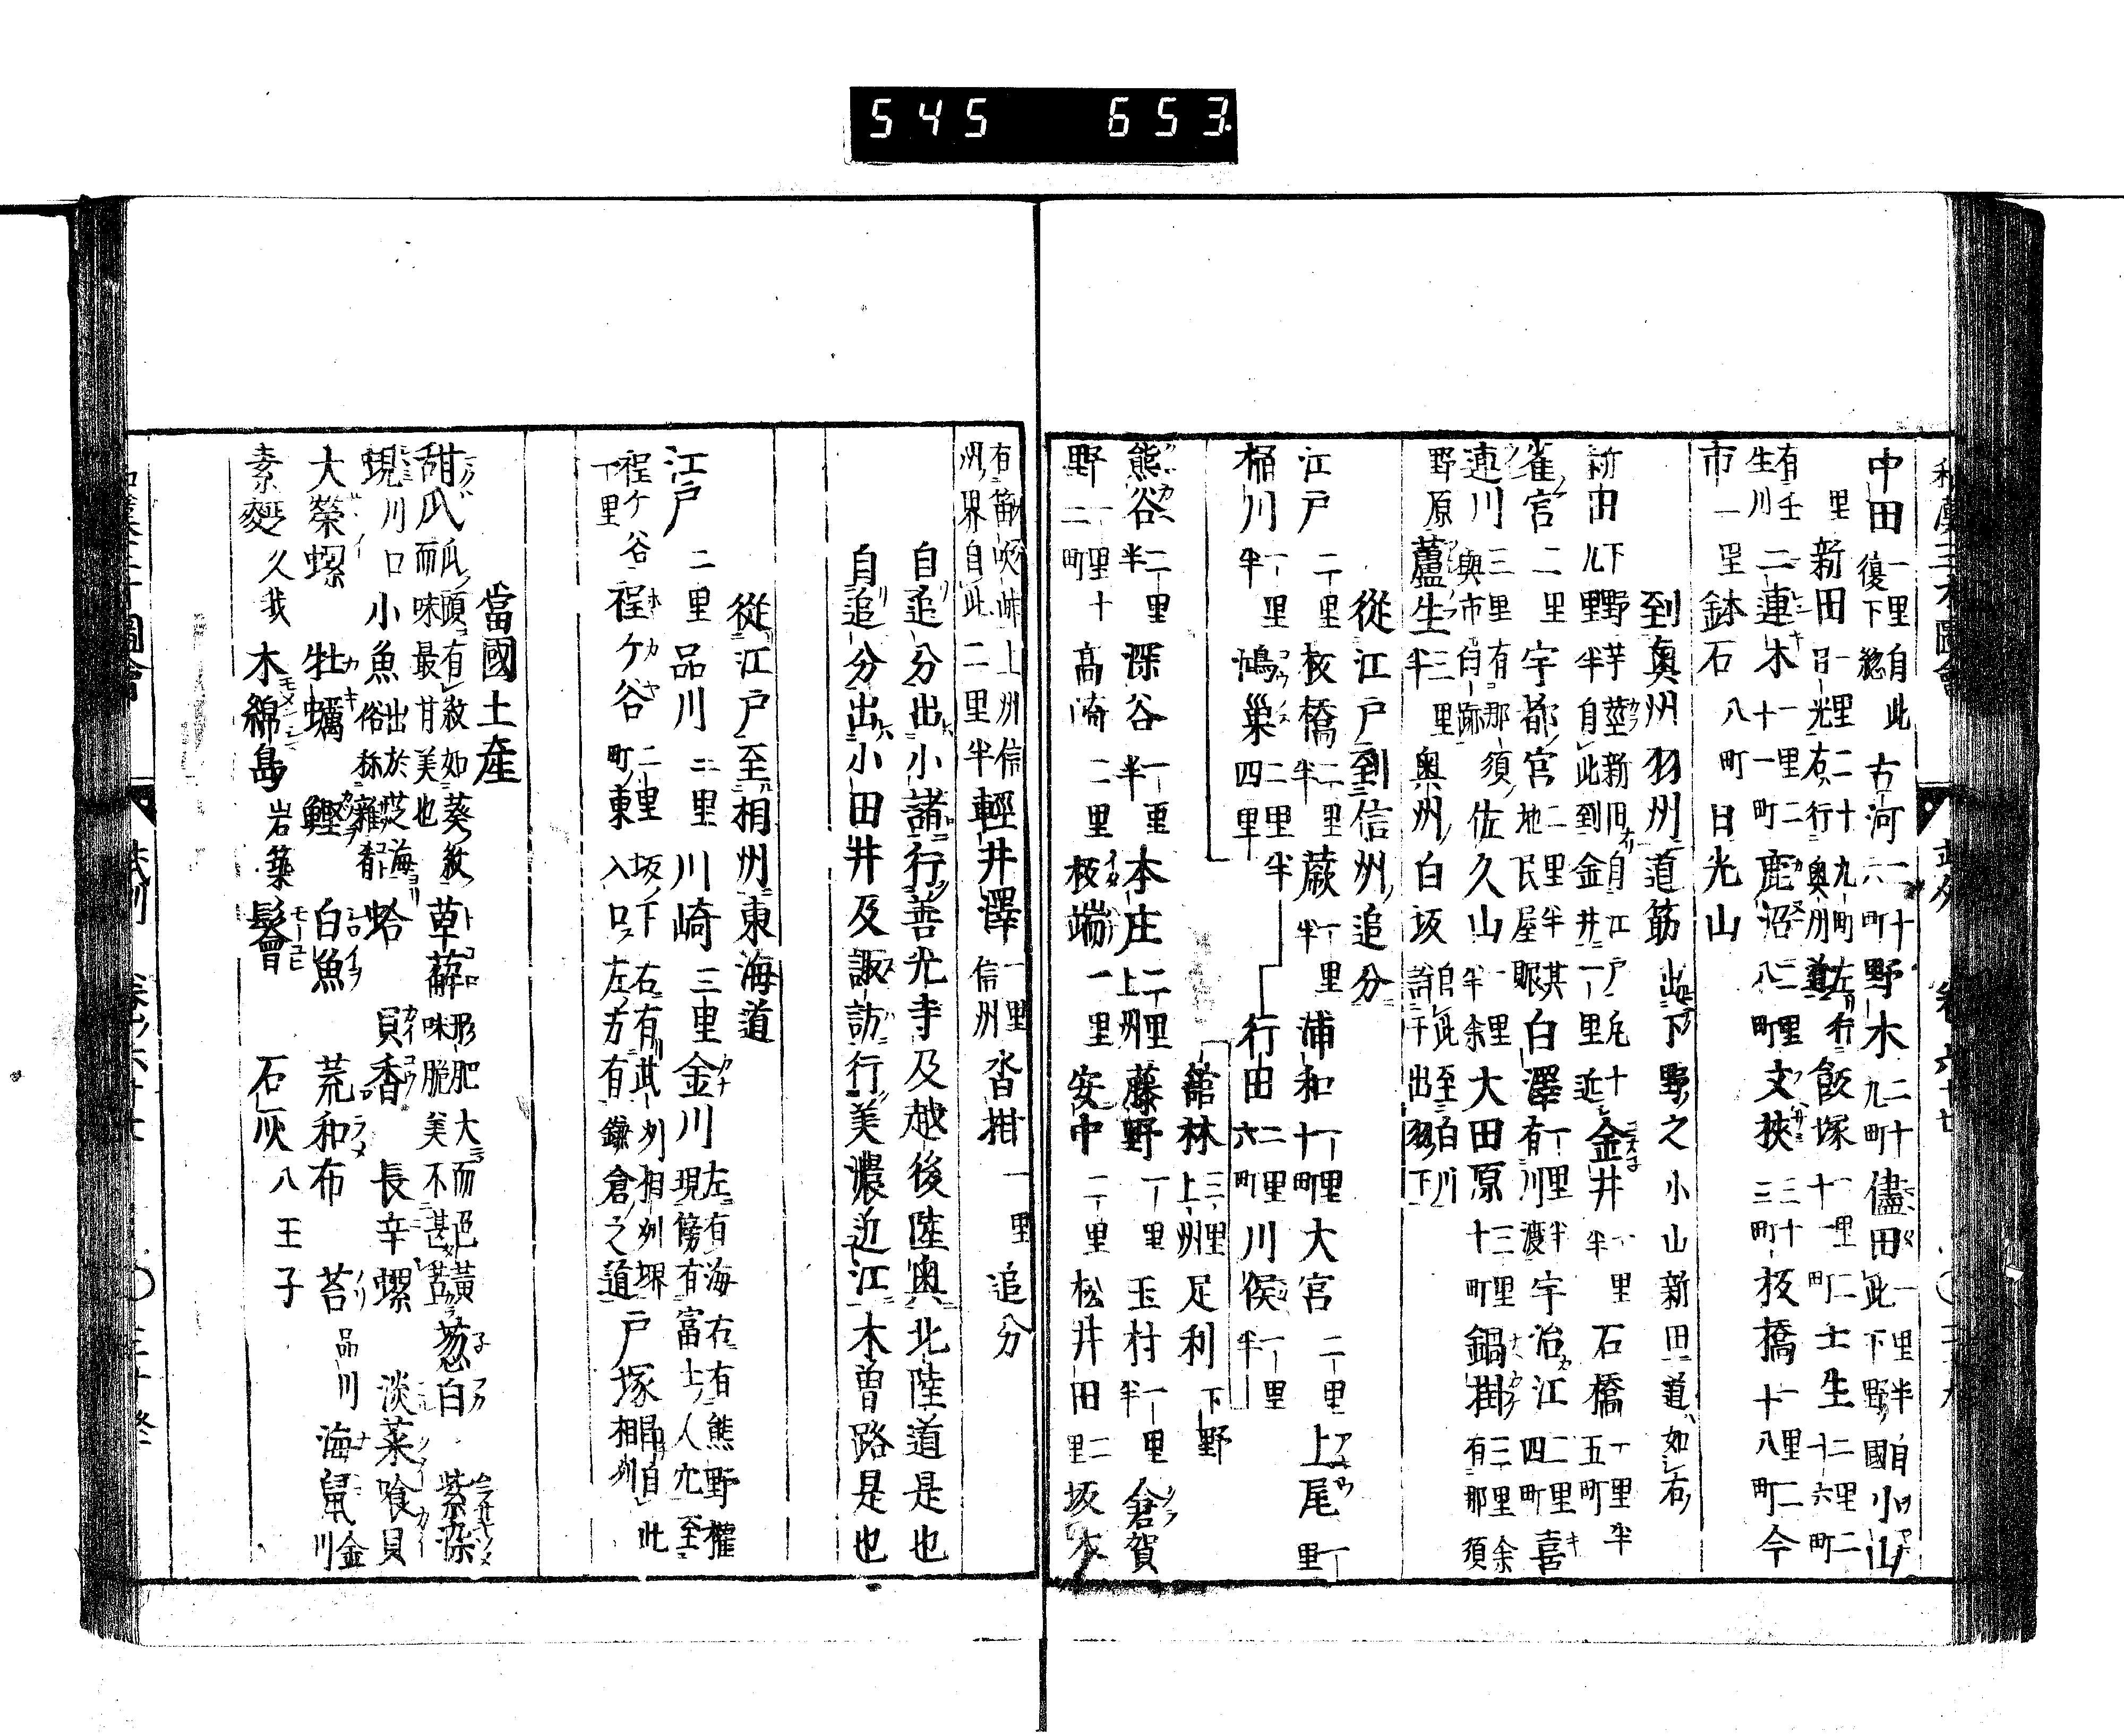 545 653
中田 一里 自此復下総 古河 一十六町 野木 二十九町 儘田 一里半 自此下野國 小山
里 新田 一里二十九町 左行日光右行奥州道 飯塚 一里十一町 壬生 二里二十六町
有壬生川 二連木 一里二十一町 鹿沼 二里八町 文挟 三十三町 板橋 一里十八町 今
市 一里 鉢石 八町 日光山
到奥州羽州道筋 出下野之小山新田道如右
新田 下野芋莖新田自江戸凡十九里半自此到金井一里近 金井 一里半 石橋 一里半五町
雀宮 二里 宇都宮 二里半 其地民屋賑 白澤 一里半 有川渡 宇治江 二里四町 喜
連川 三里 有那須與市旧跡 佐久山 一里半余 大田原 三里十町 鍋掛 三里余 有那須
野原 蘆生 三里半 奥州 白坂 自此至白川許于出羽下
從江戸到信州追分
江戸 二里 板橋 二里半 蕨 一里半 浦和 一里十町 大宮 二里 上尾 一里
桶川 一里半 鴻巣 二里半四里 行田 二里六町 川俣 一里半
舘林 三里 上州 足利 下野
熊谷 二里半 深谷 一里半 本庄 二里 上州 藤野 一里 玉村 一里半 倉賀
野 一里十二町 高崎 二里 板端 一里 安中 二里 松井田 二里 坂本
有笛吹峠上州信州界自此 二里半 輕井澤 一里 信州 沓掛 一里 追分
自追分出小諸行善光寺及越後陸奥北陸道是也
自追分出小田井及諏訪行美濃近江木曽路是也
從江戸至相州東海道
江戸 二里 品川 二里 川崎 三里 金川 左有海右有熊野權現傍有富士人穴至
程ケ谷一里 程ケ谷 二里 坂下町東入口左方有鎌倉之道右有武州相州堺 戸塚 自此相州
當國土産
甜瓜 瓜頭有紋如葵紋而味最甘美也 草薢 形肥大而色黃味脆美不甚苦 葱白 紫染
蜆 川口 小魚 出於芝海俗称雜肴 蛤 貝香 長辛螺 淡菜喰貝
大榮螺 牡蠣 鰹 白魚 荒和布 苔 品川 海鼠 金川
素麪 久我 木綿島 岩築 鬙 石灰 八王子